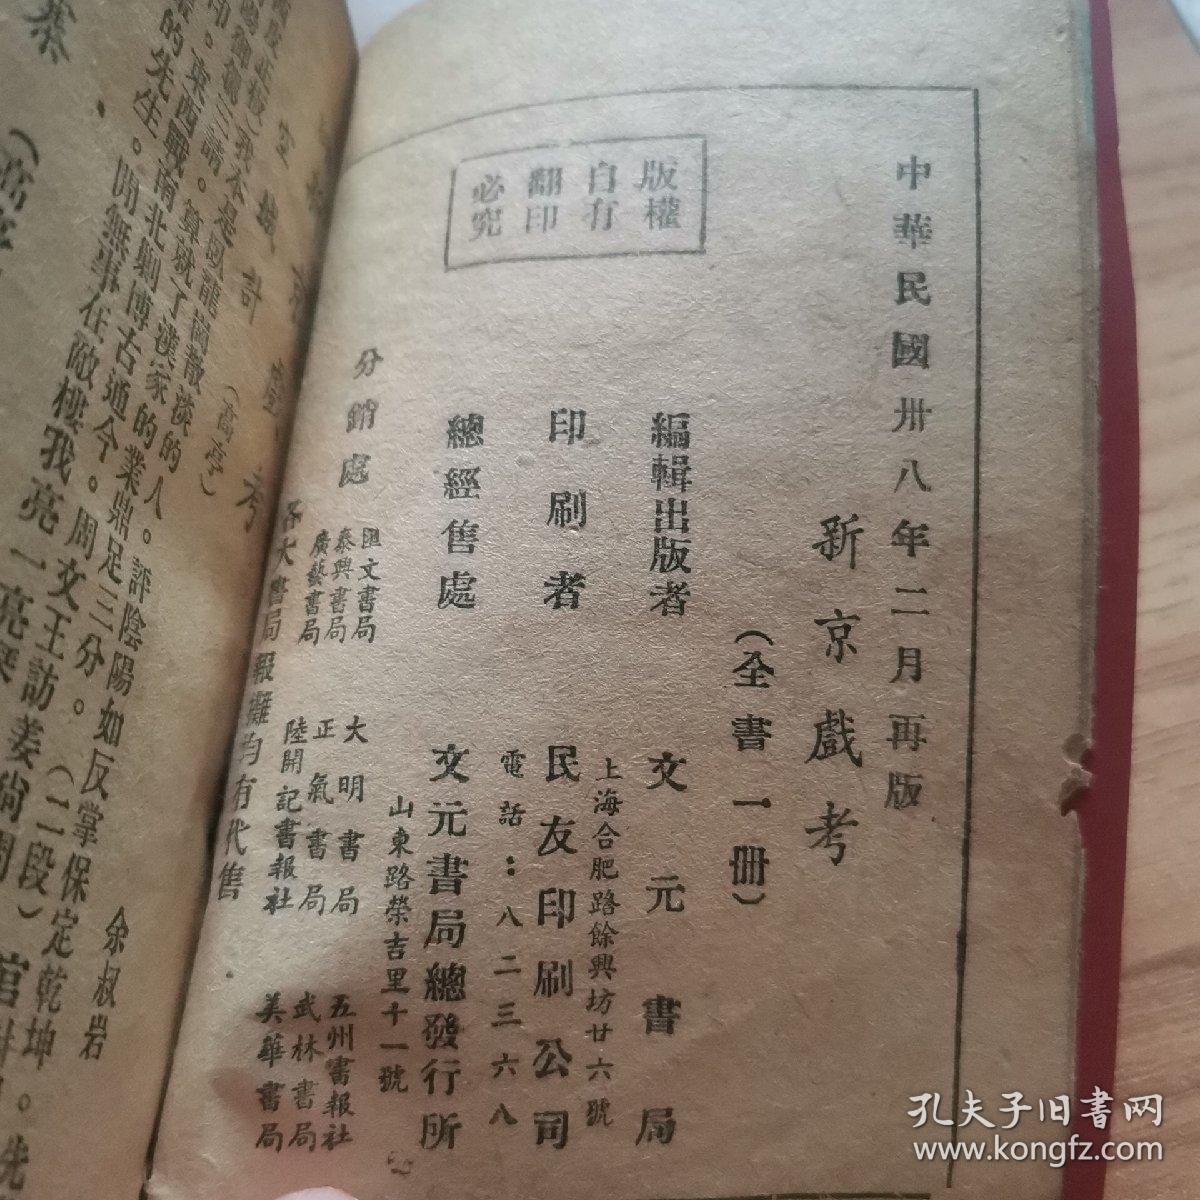 中華民國卅八年二月再版
新京戲考
(全書一冊)
版權
自有
翻印
必究
編輯出版者 文元書局
上海合肥路餘興坊廿六號
印刷者 民友印刷公司
電話：八二三六八
總經售處 文元書局總發行所
山東路榮吉里十一號
分銷處
匯文書局 大明書局 五州書報社
泰興書局 正氣書局 武林書局
廣藝書局 陸開記書報社 美華書局
各大書局報攤均有代售
考
空城計
(高亭)
余叔岩
我本是臥龍崗散淡的人。評陰陽如反掌保定乾坤。先
御駕三請。算就了漢家的業鼎足三分。
東西戰南北剿博古通今。周文王訪姜尚周
的先生。閒無事在敵樓我亮一亮琴
(二段)
孔夫子旧书网
www.kongfz.com